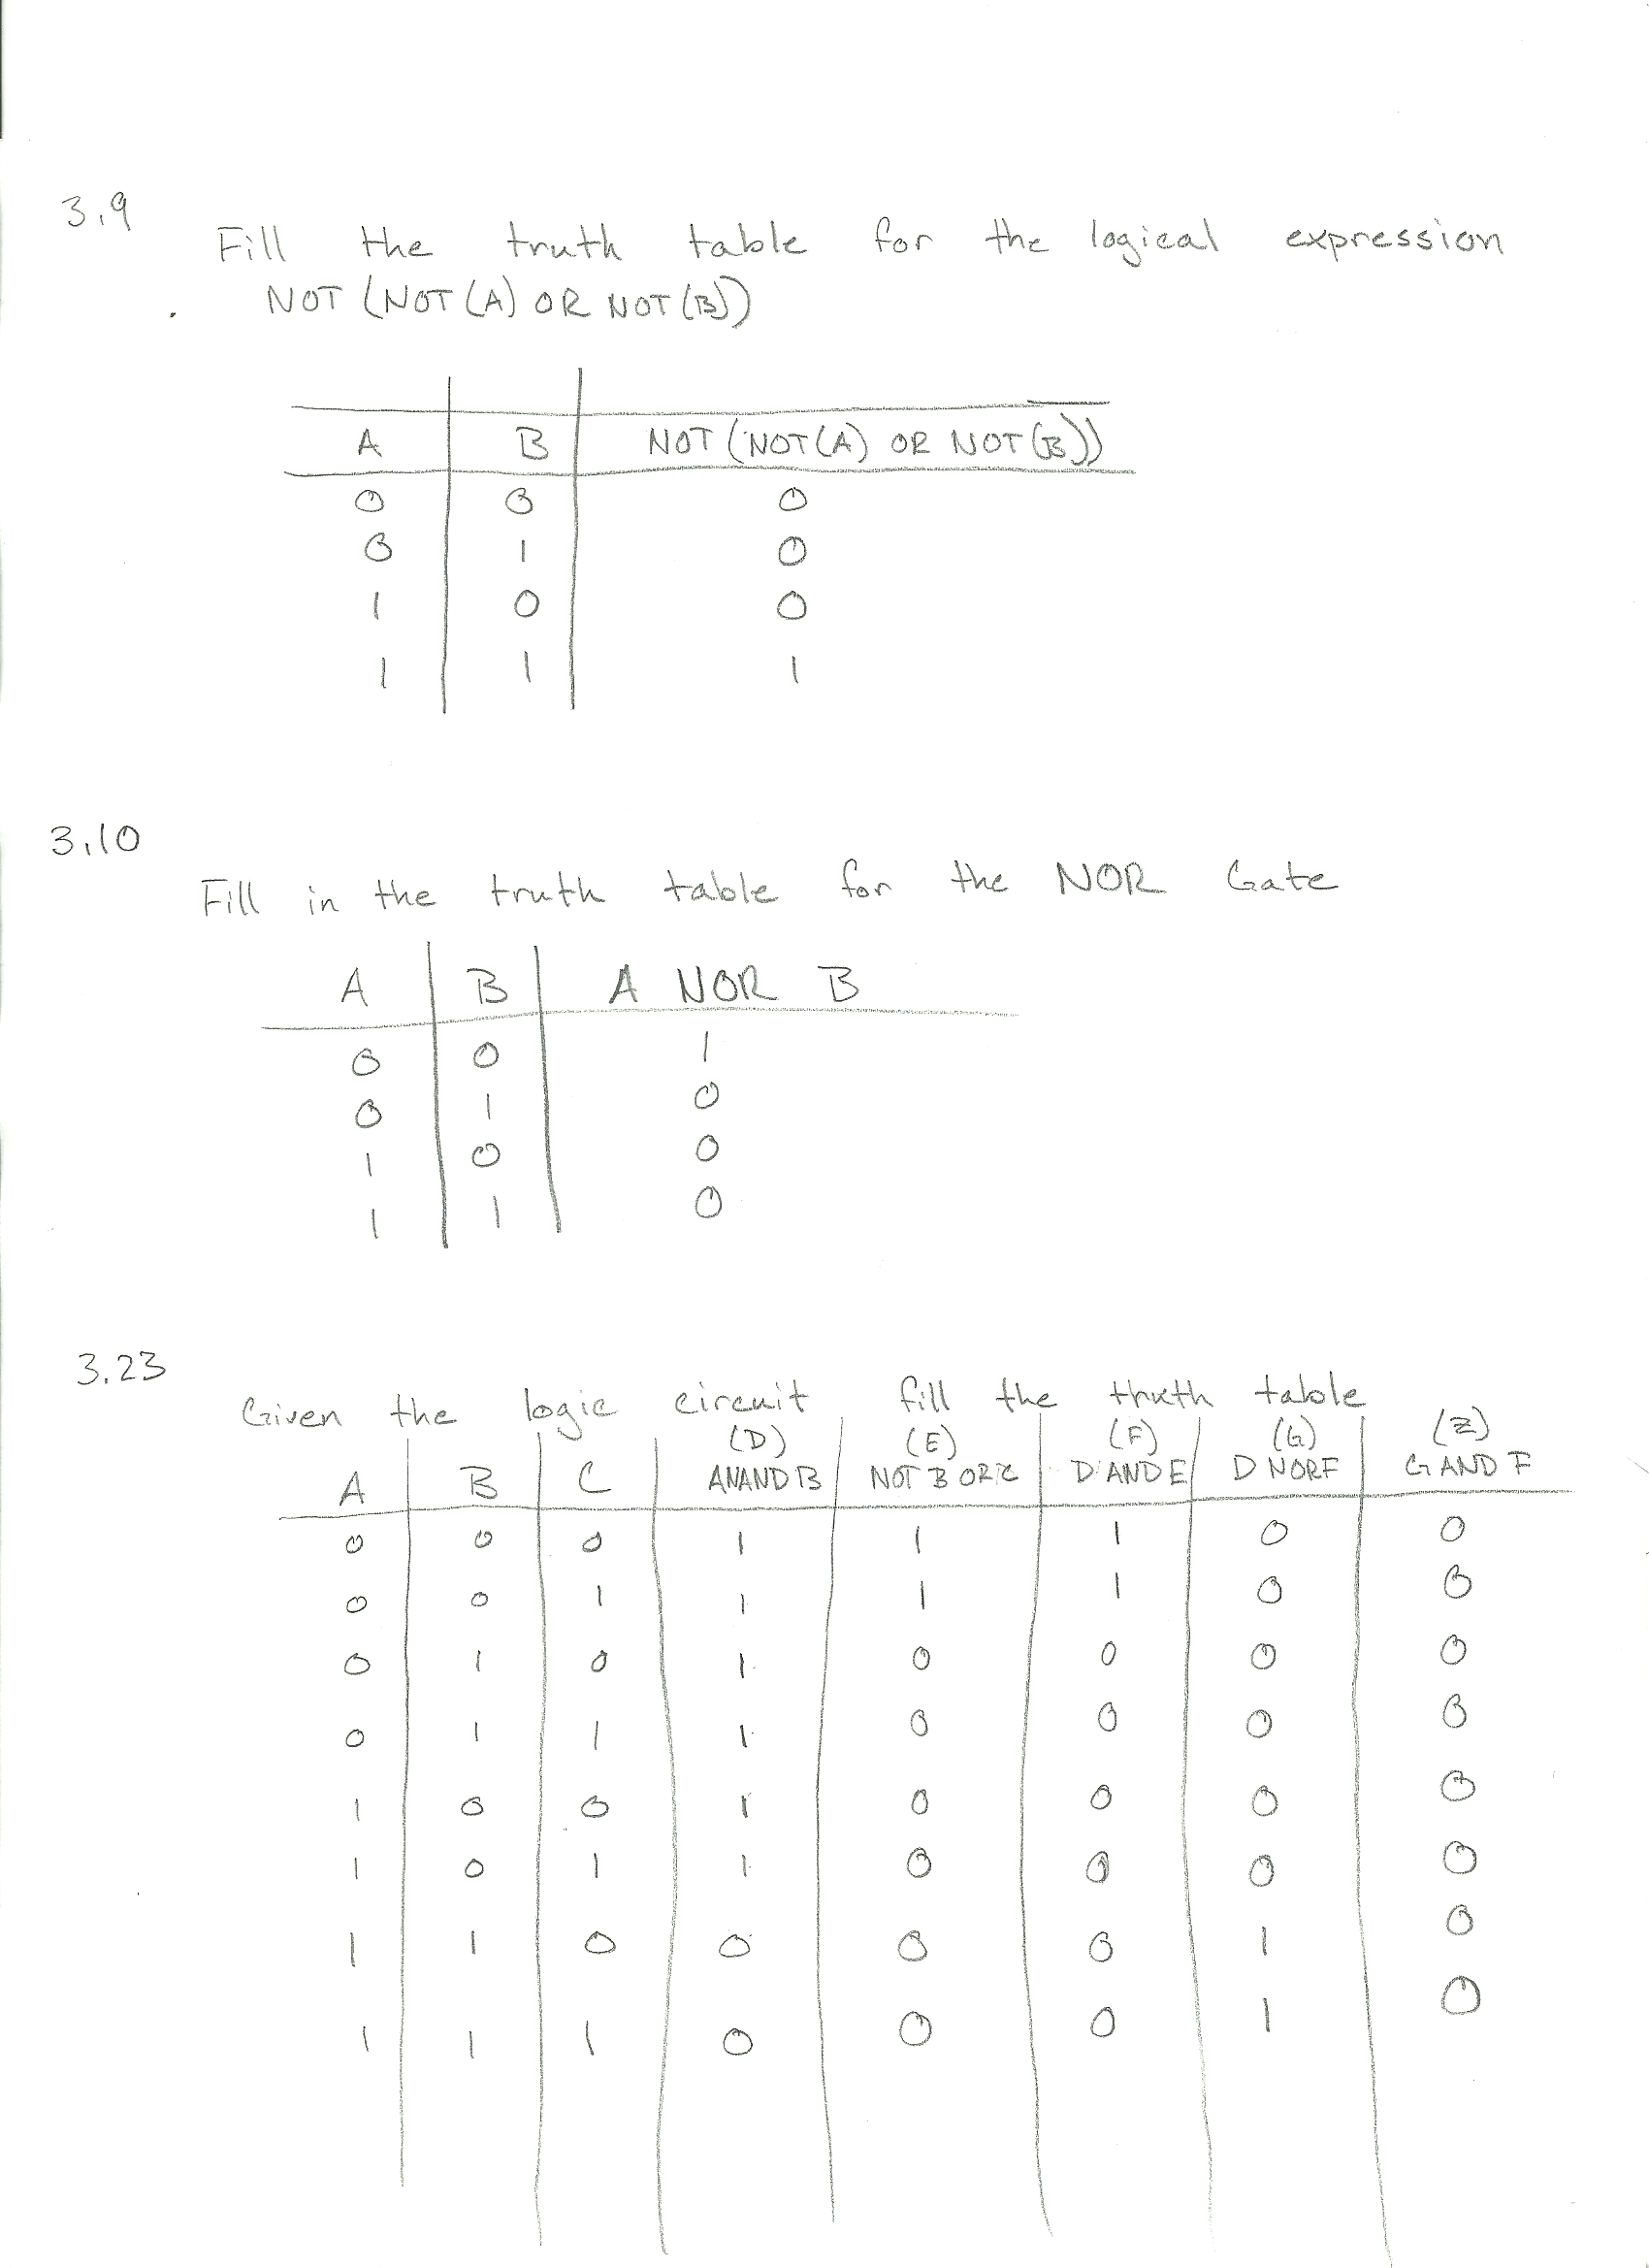 3.9
Fill the truth table for the logical expression
NOT (NOT (A) OR NOT (B))
A B NOT (NOT (A) OR NOT (B))
0 0 0
0 1 0
1 0 0
1 1 1
3.10
Fill in the truth table for the NOR Gate
A B A NOR B
0 0 1
0 1 0
1 0 0
1 1 0
3.23
Given the logic circuit fill the truth table
(D) (E) (F) (G) (Z)
A B C A NAND B NOT B OR C D AND E D NOR F G AND F
0 0 0 1 1 1 0 0
0 0 1 1 1 1 0 0
0 1 0 1 0 0 0 0
0 1 1 1 0 0 0 0
1 0 0 1 0 0 0 0
1 0 1 1 0 0 0 0
1 1 0 0 0 0 1 0
1 1 1 0 0 0 1 0